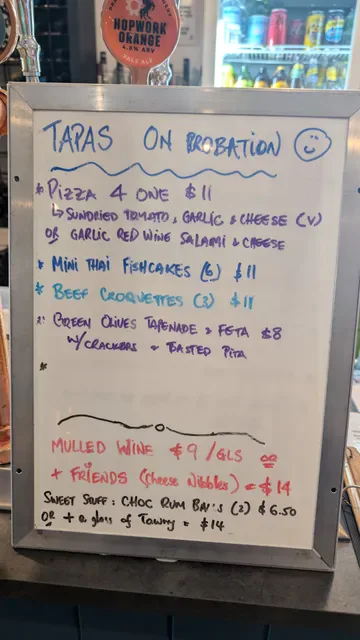 HOPWORK
ORANGE
4.2% ABV
PALE ALE
TAPAS ON PROBATION
* PIZZA 4 ONE $11
↳ SUNDRIED TOMATO, GARLIC & CHEESE (V)
OR GARLIC RED WINE SALAMI & CHEESE
* MINI THAI FISHCAKES (6) $11
* BEEF CROQUETTES (3) $11
* GREEN OLIVES TAPENADE & FETA $8
W/CRACKERS & TOASTED PITA
*
MULLED WINE $9 /GLS OR
+ FRIENDS (Cheese Nibbles) = $14
SWEET STUFF: CHOC RUM BAL'S (2) $6.50
OR + a glass of Tawny = $14